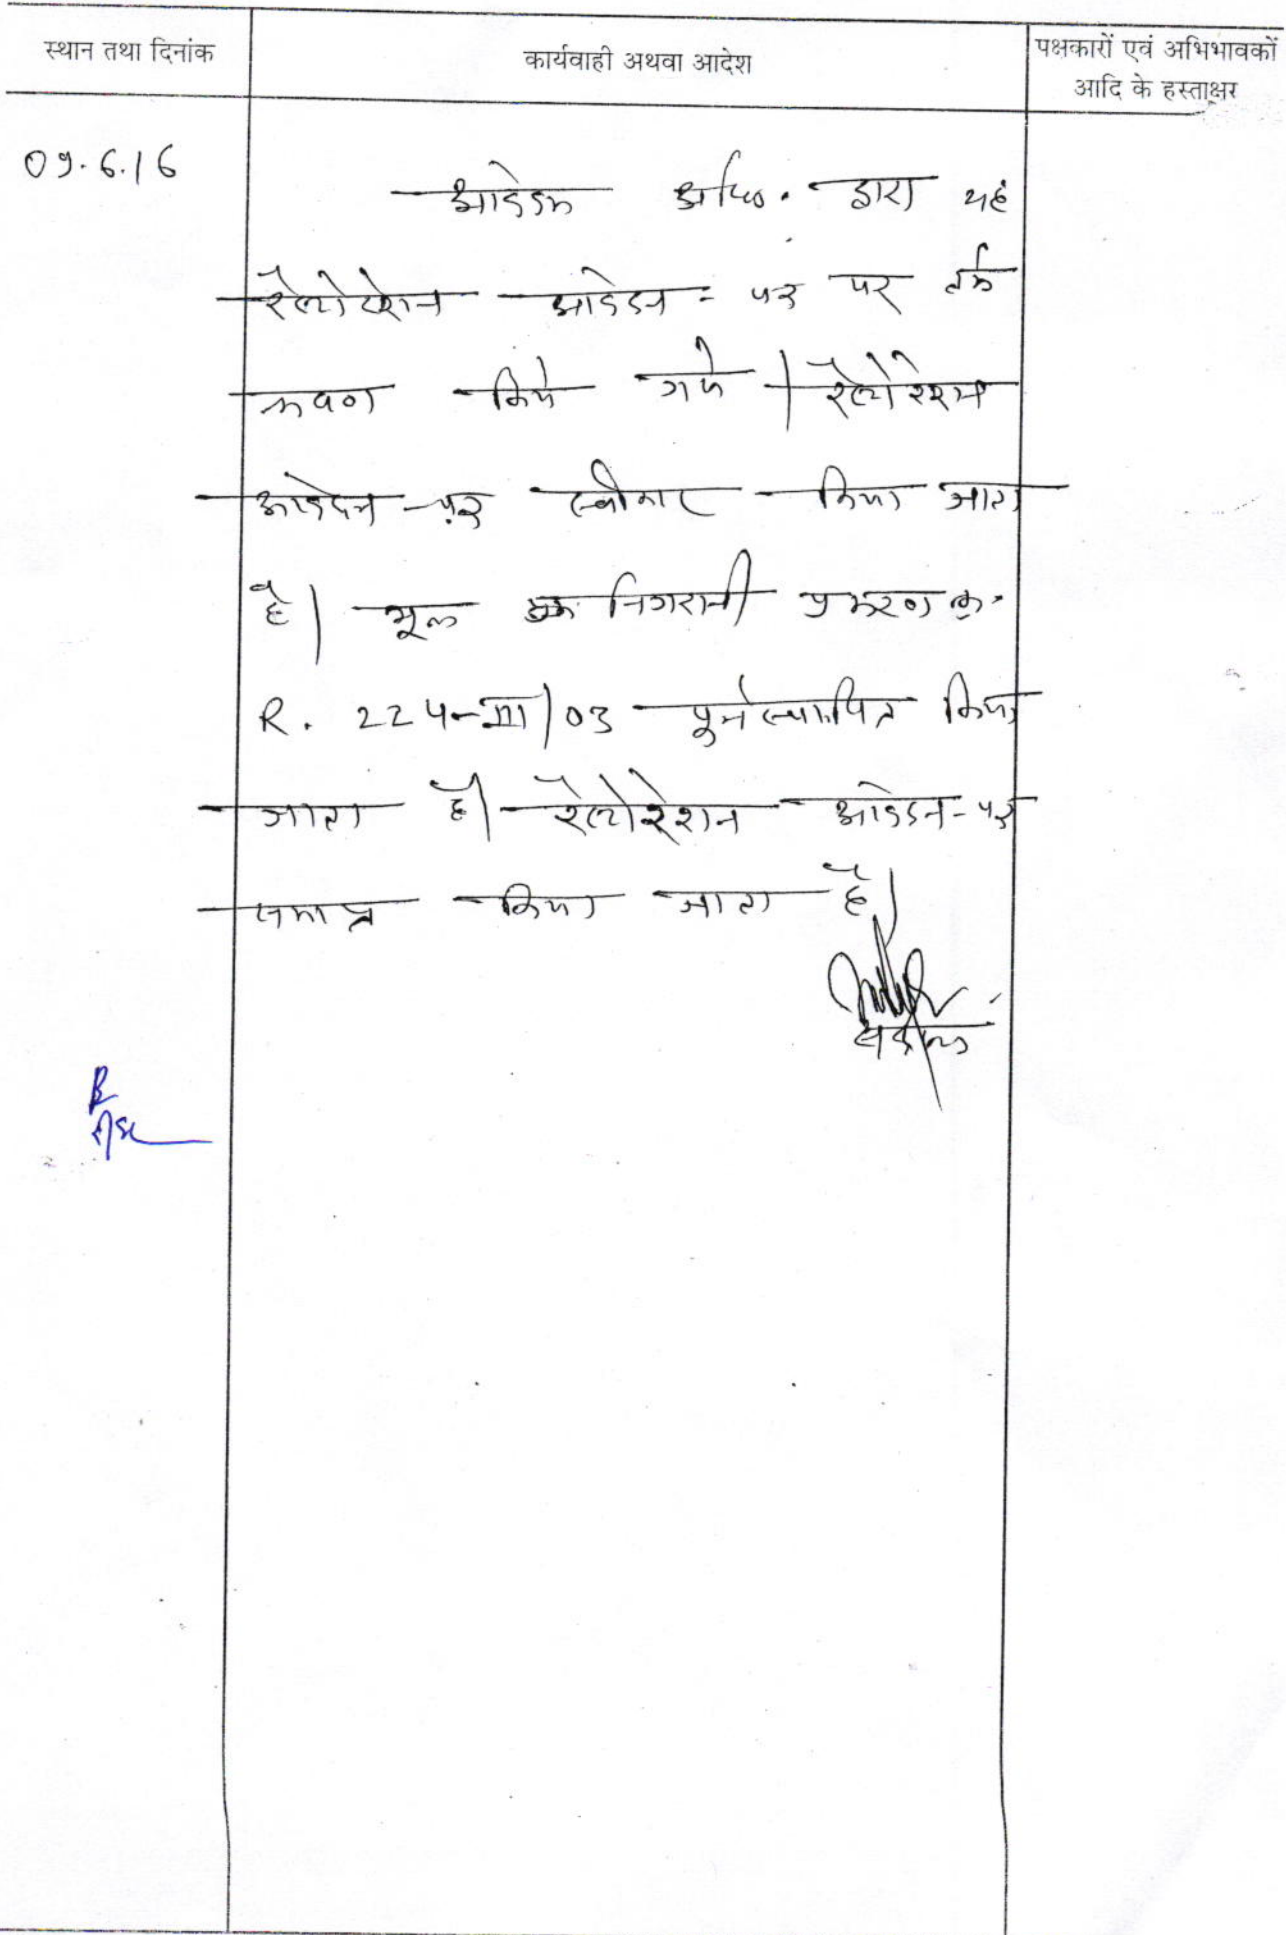 स्थान तथा दिनांक
कार्यवाही अथवा आदेश
पक्षकारों एवं अभिभावकों
आदि के हस्ताक्षर
09.6.16
आवेदक अभि. द्वारा यह
रेस्टोरेशन आवेदन-पत्र पर तर्क
श्रवण किये गये। रेस्टोरेशन
आवेदन-पत्र स्वीकार किया जाता
है। मूल निगरानी प्रकरण क्र.
R. 224-III/03 पुर्नस्थापित किया
जाता है। रेस्टोरेशन आवेदन-पत्र
समाप्त किया जाता है।
सदस्य